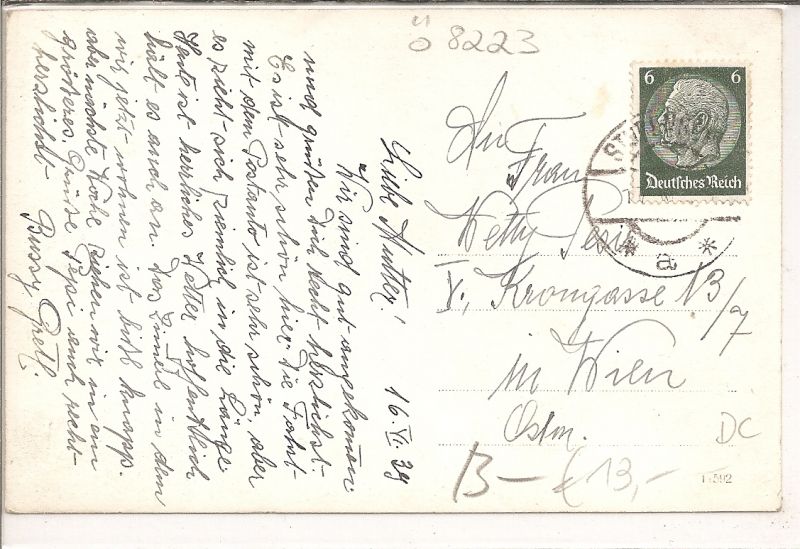 Liebe Mutter! 16. VI. 39
Wir sind gut angekommen
und grüßen Dich recht herzlichst.
Es ist sehr schön hier, die Fahrt
mit dem Postauto ist sehr schön, aber
es zieht sich ziemlich in die Länge.
Heute ist herrliches Wetter hoffentlich
hält es auch an. Das Zimmer in dem
wir jetzt wohnen ist knapp.
aber nächste Woche ziehen wir in ein
größeres. Grüße Pepi auch recht
herzlichst Bussy Gretl.
ö 8223
6 6
Deutsches Reich
a
An Frau
Netty
V., Krongasse 13/7
in Wien
Ostm.
B— € 13,-
DC